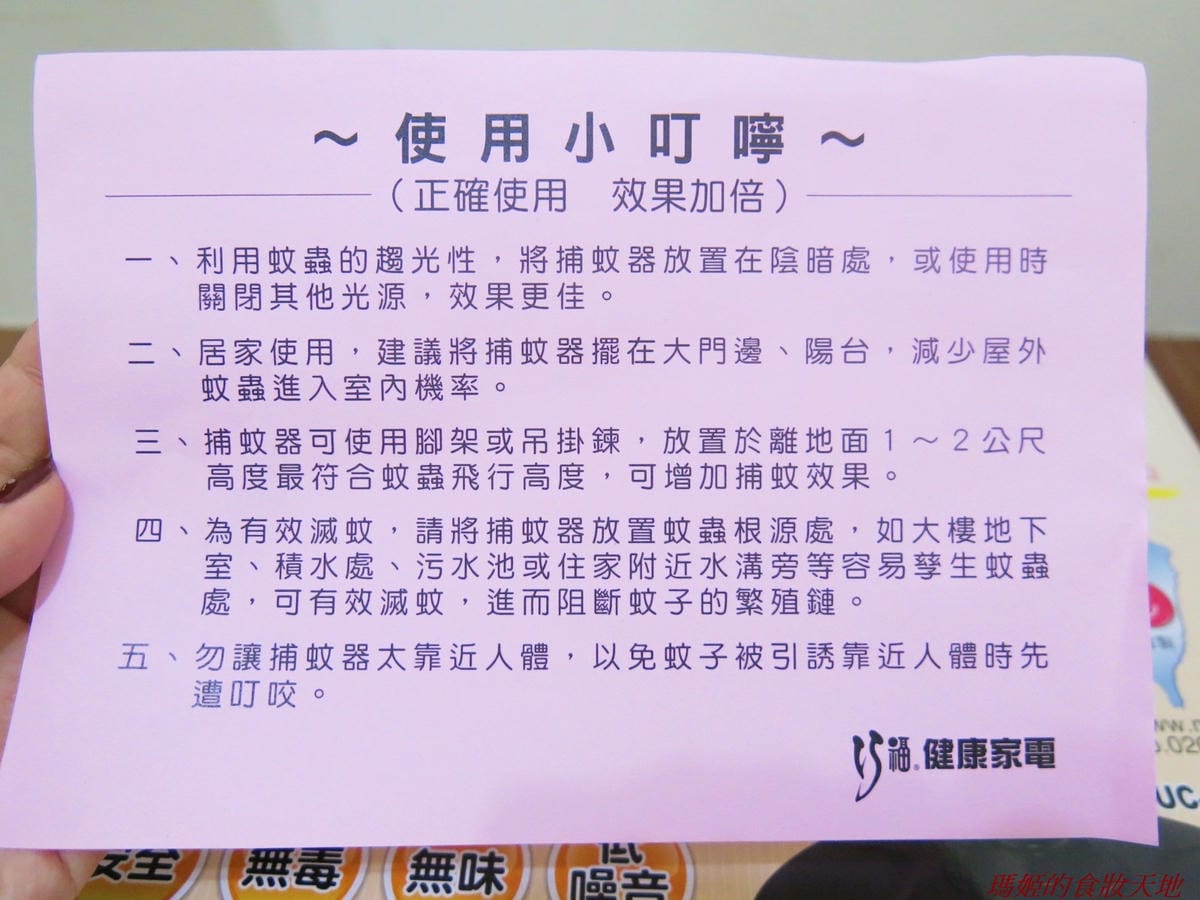 ～使用小叮嚀～
（正確使用　效果加倍）
一、利用蚊蟲的趨光性，將捕蚊器放置在陰暗處，或使用時
關閉其他光源，效果更佳。
二、居家使用，建議將捕蚊器擺在大門邊、陽台，減少屋外
蚊蟲進入室內機率。
三、捕蚊器可使用腳架或吊掛鍊，放置於離地面１～２公尺
高度最符合蚊蟲飛行高度，可增加捕蚊效果。
四、為有效滅蚊，請將捕蚊器放置蚊蟲根源處，如大樓地下
室、積水處、污水池或住家附近水溝旁等容易孳生蚊蟲
處，可有效滅蚊，進而阻斷蚊子的繁殖鏈。
五、勿讓捕蚊器太靠近人體，以免蚊子被引誘靠近人體時先
遭叮咬。
巧福®健康家電
安全
無毒
無味
低
噪音
UC
瑪姬的食妝天地